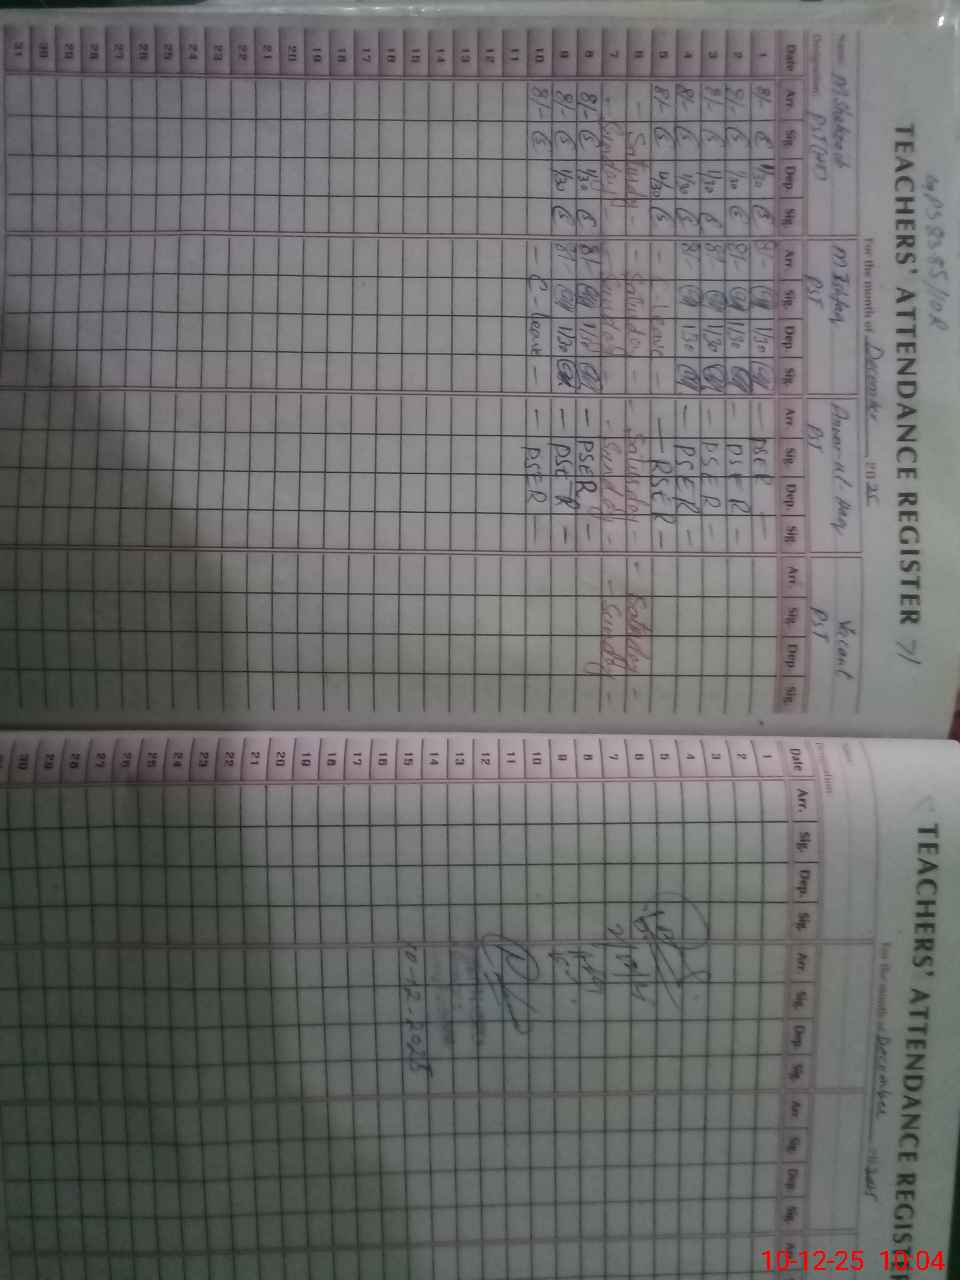 TEACHERS' ATTENDANCE REGISTER 71
For the month of December 2025
Name M Designation PST
PST
Anwar-ul-Haq PST
Vacant PST
Date Arr. Sig. Dep. Sig. Arr. Sig. Dep. Sig. Arr. Sig. Dep. Sig. Arr. Sig. Dep. Sig.
1 8/- 1/30 8/- 1/30 - PSER -
2 8/- 1/30 8/- 1/30 - PSER -
3 8/- 1/30 8/- 1/30 - PSER -
4 8/- 1/30 8/- 1/30 - PSER -
5 8/- - leave - - PSER -
6 - Saturday - - Saturday - - Saturday - - Saturday -
7 - Sunday - - Sunday - - Sunday - - Sunday -
8 8/- 1/30 8/- 1/30 - PSER -
9 8/- 1/30 8/- 1/30 - PSER -
10 8/- - C - leave - - PSER -
11
12
13
14
15
16
17
18
19
20
21
22
23
24
25
26
27
28
29
30
31
TEACHERS' ATTENDANCE
For the month of December 2025
Name
Designation
Date Arr. Sig. Dep. Sig. Arr. Sig. Dep. Sig. Arr. Sig. Dep. Sig.
1
2
3
4
5
6
7
8
9
10
11
12
13
14
15
16
17
18
19
20
21
22
23
24
25
26
27
28
29
30
10-12-2025
10-12-25 10:04